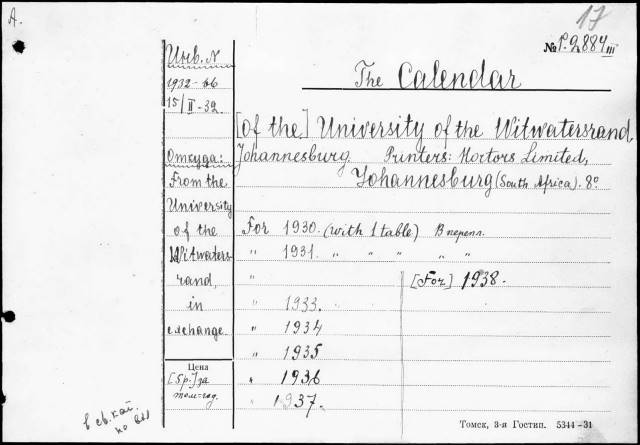 A.
17
№ P.2884 III
Инв. N
1932-66
15/II-32
The Calendar
[of the] University of the Witwatersrand
Johannesburg. Printers: Hortors Limited,
Johannesburg (South Africa). 8°
Откуда:
From the
University
of the
Witwaters-
rand,
in
exchange.
For 1930. (with 1 table) В перепл.
" 1931. " " " " "
" [For] 1938.
" 1933.
" 1934
" 1935
" 1936
" 1937.
Цена
[Sp.] за
том-год.
Томск, 3-я Гостип. 5344-31